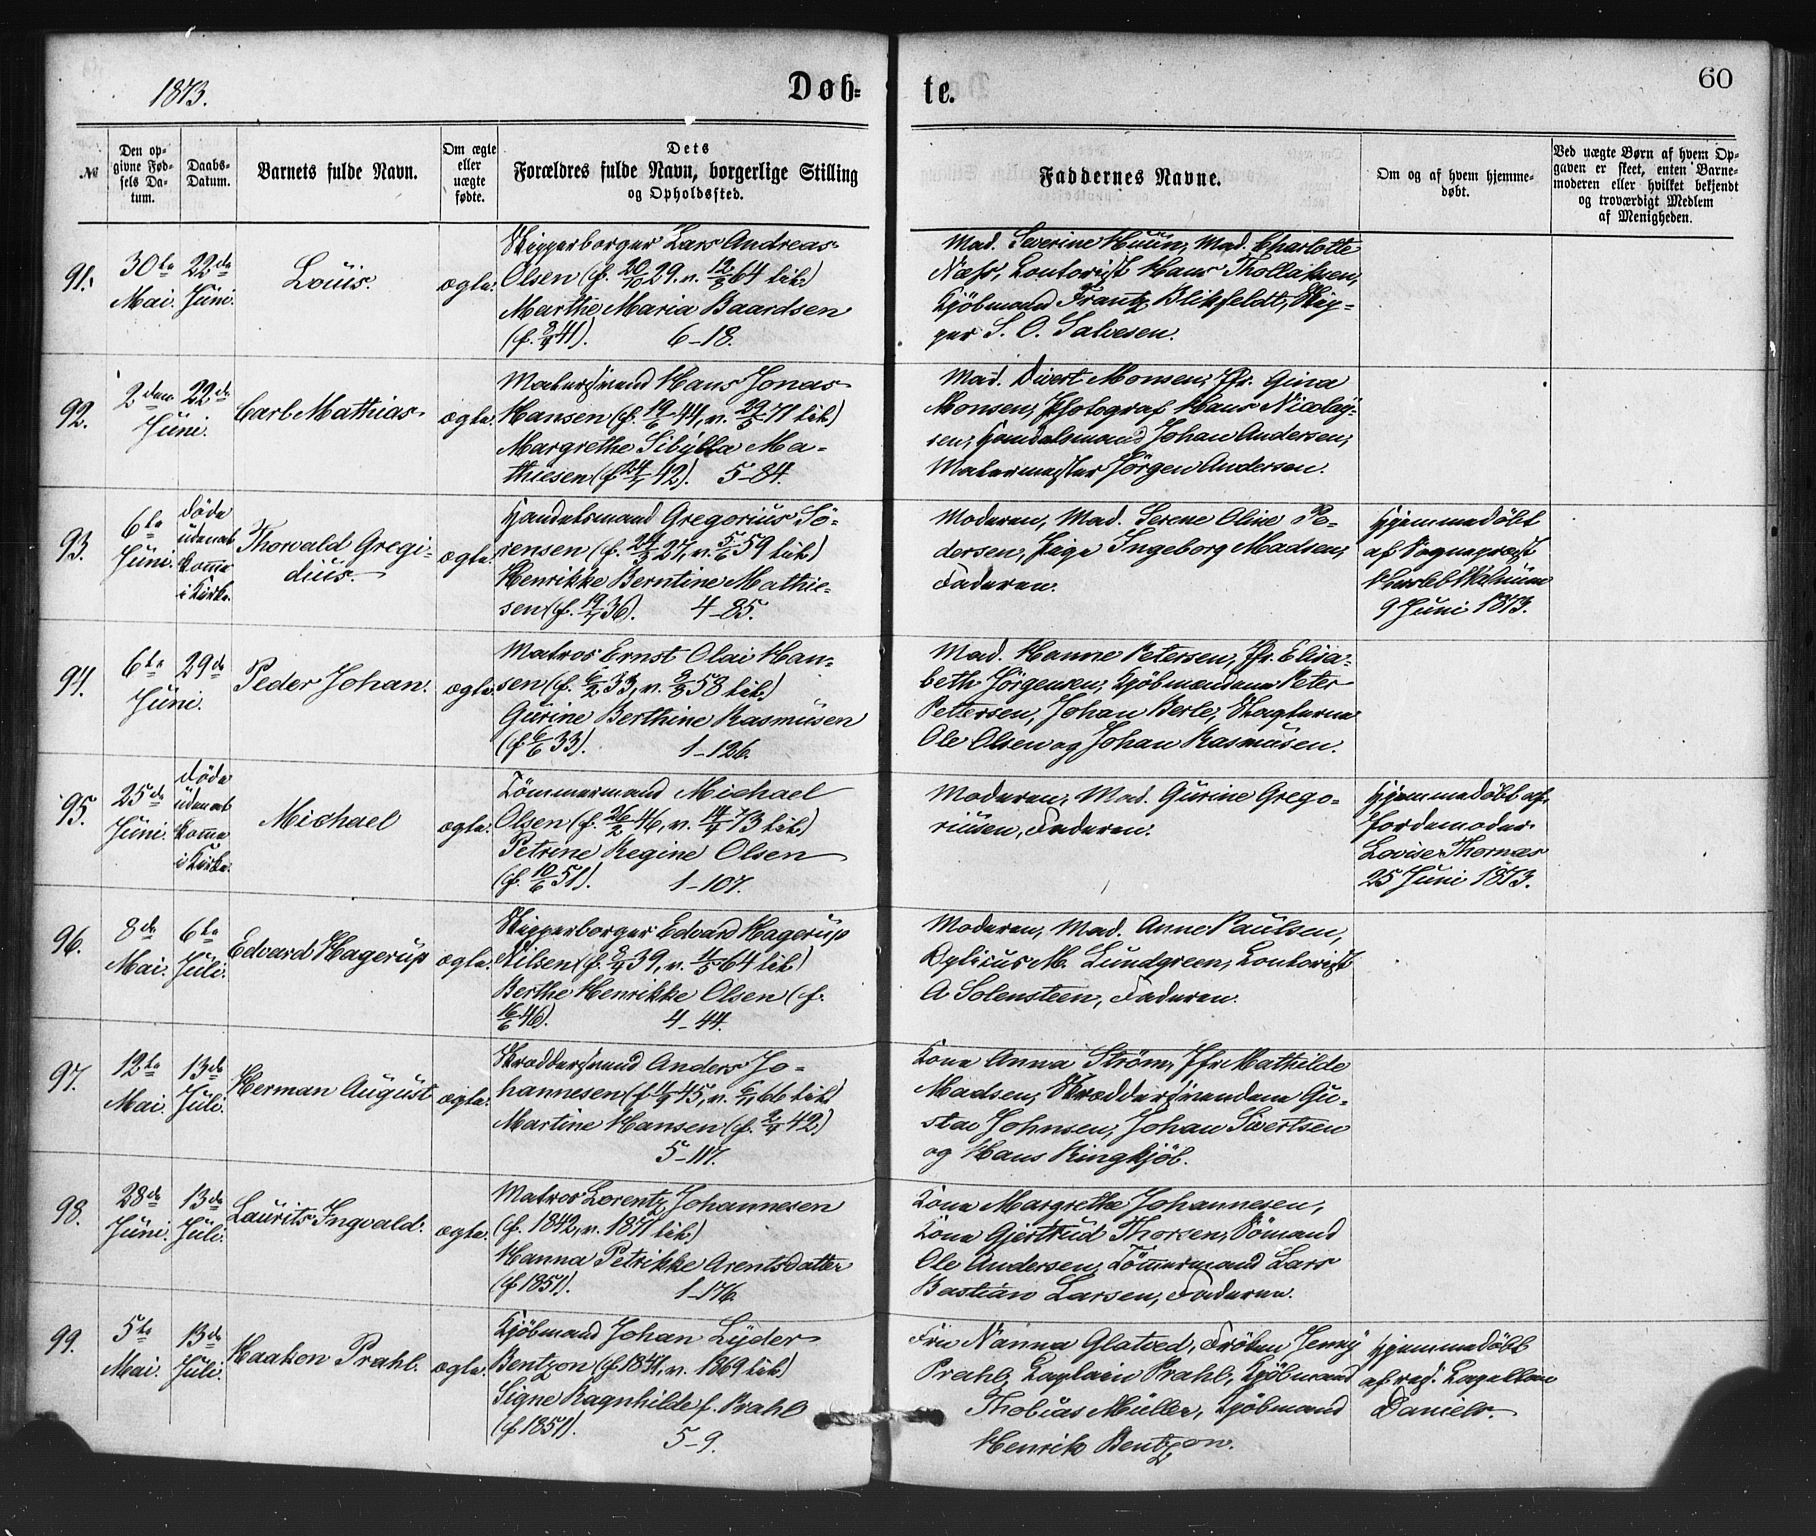 1873.
Døb-
te.
60
№
Den op-
givne Fød-
sels Da-
tum.
Daabs-
Datum.
Barnets fulde Navn.
Om ægte
eller
uægte
fødte.
Dets
Forældres fulde Navn, borgerlige Stilling
og Opholdssted.
Faddernes Navne.
Om og af hvem hjemme-
døbt.
Ved uægte Børn af hvem Op-
gaven er skeet, enten Barne-
moderen eller hvilket bekjendt
og troværdigt Medlem
af Menigheden.
91.
30te
Mai.
22de
Juni.
Louis.
ægte.
Skipperborger Lars Andreas
Olsen (f. 20/10 29. v. 12/8 64 hib.)
Marthe Maria Baardsen
(f. 3/4 41). 6-18.
Mad. Severine Huun, Mad. Charlotte
Næss, Contorist Hans Thollaksen,
Kjøbmand Frantz Blikfeldt, Skip-
per S. O. Salvesen.
92.
2den
Juni.
22de
Carl Mathias
ægte.
Malersvend Hans Jonas
Hansen (f. 19/6 44, v. 29/5 71 hib.)
Margrethe Sibylla Ma-
thiesen (f. 24/1 42). 5-84.
Mad. Sivert Monsen, Jfr. Gina
Monsen, Photograf Hans Nicolay-
sen, Handelsmand Johan Andersen,
Malermester Jørgen Andersen.
93.
6te
Juni.
døde
udenat
komme
i Kirke.
Thorvald Gregi-
dius.
ægte.
Handelsmand Gregorius Sö-
rensen (f. 24/3 27, v. 5/6 59 hib.)
Henrikke Berntine Mathie-
sen (f. 19/1 36). 4-85.
Moderen, Mad. Serene Oline Pe-
dersen, Pige Ingeborg Madsen,
Faderen.
Hjemmedøbt
af Sognepræst
Walnum
9 Juni 1873.
94.
6te
Juni.
29de
Peder Johan.
ægte.
Matros Ernst Olai Han-
sen (f. 6/2 33, v. 2/8 58 hib.)
Gurine Berthine Rasmusen
(f. 6/6 33). 1-126.
Mad. Hanne Petersen, Jfr. Elisa-
beth Jörgensen, Kjøbmændene Peter
Pettersen, Johan Berle, Slagterne
Ole Olsen og Johan Rasmusen.
95.
25de
Juni.
døde
udenat
komme
i Kirke.
Michael
ægte.
Tömmermand Michael
Olsen (f. 26/2 46, v. 14/4 73 hib.)
Petrine Regine Olsen
(f. 10/6 51). 1-107.
Moderen, Mad. Gurine Grego-
riusen, Faderen.
Hjemmedøbt af
Jordemoder
Lovise Thornæs
25 Juni 1873.
96.
8de
Mai.
6te
Juli.
Edvard Hagerup
ægte.
Skipperborger Edvard Hagerup
Nilsen (f. 2/4 39, v. 4/5 64 hib.)
Berthe Henrikke Olsen (f.
16/6 46). 4-44.
Moderen, Mad. Anne Paulsen,
M. Lundgreen, Contorist
A Solensteen, Faderen.
97.
12te
Mai.
13de
Juli.
Herman August
ægte.
Skræddersvend Anders Jo-
hannesen (f. 4/9 45, v. 6/1 66 hib.)
Martine Hansen (f. 2/4 42)
5-117.
Kone Anna Ström, Jfr. Mathilde
Madsen, Skræddersvendene Gu-
stav Johnsen, Johan Sivertsen
og Hans Ringkjöb.
98.
28de
Juni.
13de
Juli.
Laurits Ingvald.
ægte.
Matros Lorentz Johannesen
(f. 1842, v. 1871 hib.)
Hanna Petrikke Arentsdatter
(f. 1851). 1-176.
Kone Margrethe Johannesen,
Kone Gjertrud Thorsen, Sömand
Ole Andersen, Tömmermand Lars
Bastian Larsen, Faderen.
99.
5te
Mai.
13de
Juli.
Haakon Prahl.
ægte.
Kjøbmand Johan Lyder
Bentzon (f. 1841, v. 1869 hib.)
Signe Ragnhilde f. Prahl
(f. 1851). 5-9.
Fru Nanna Glatved, Frøken Jenny
Prahl, Kaptein Prahl, Kjøbmand
Thobias Müller, Kjøbmand
Henrik Bentzon.
Hjemmedøbt
af res. Capellan
Daniels.